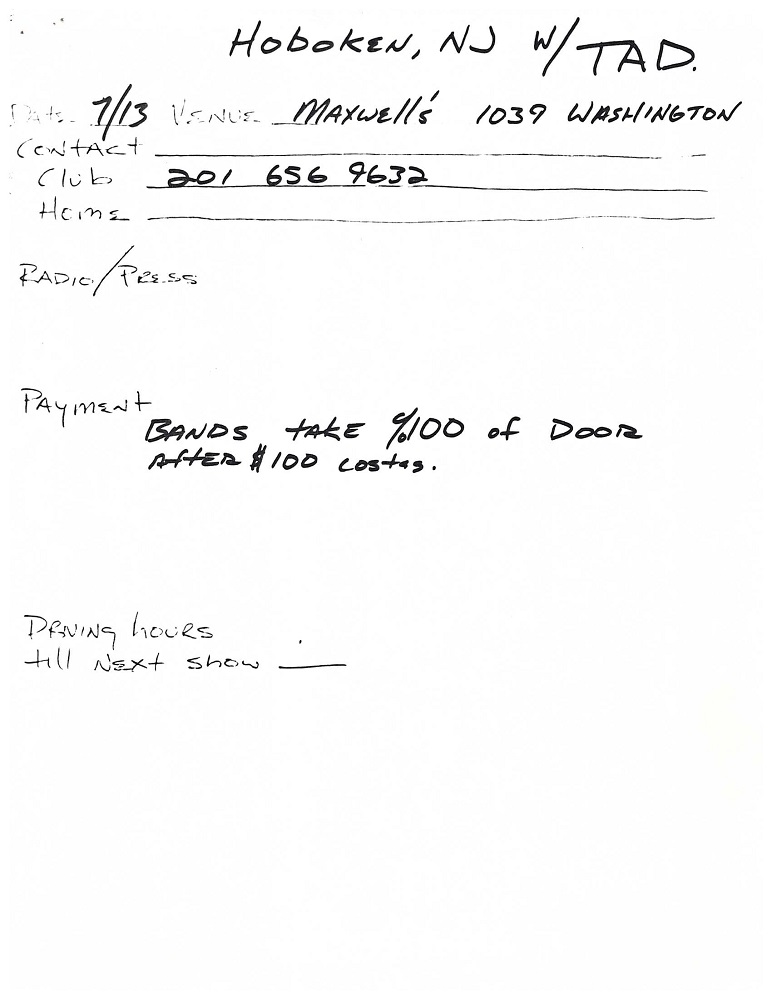 Hoboken, NJ W/ TAD.
Date 7/13 Venue Maxwell's 1039 Washington
Contact
Club 201 656 9632
Home
Radio/Press
Payment
Bands take %100 of Door
After $100 costas.
Driving hours
till next show